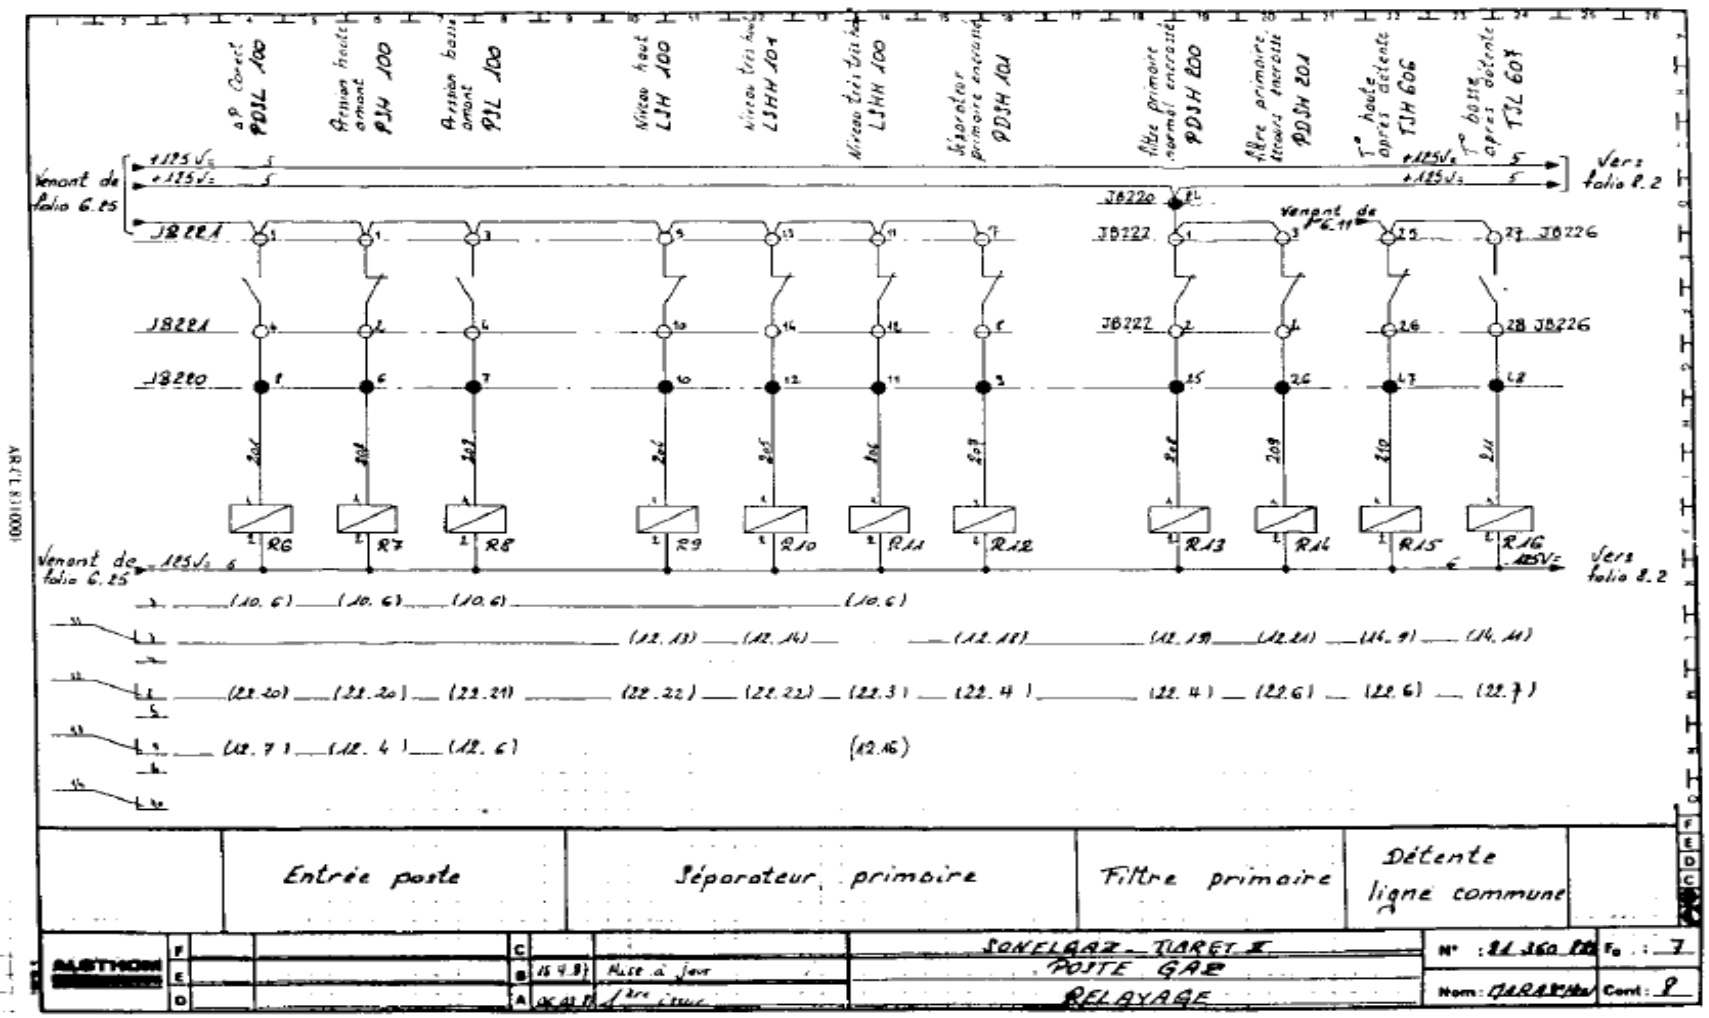 1 2 3 4 5 6 7 8 9 10 11 12 13 14 15 16 17 18 19 20 21 22 23 24 25 26
PDSL 100
Pression haute
amont
PSH 100
Pression basse
amont
PSL 100
Niveau haut
LSH 100
Niveau très haut
LSHH 101
Niveau très très haut
LSHH 100
Séparateur
primaire encrassé
PDSH 101
filtre primaire
normal encrassé
PDSH 200
filtre primaire
secours encrassé
PDSH 201
T° haute
après détente
TSH 606
T° basse
après détente
TSL 607
+125V= 5
+125V= 5
Venant de
folio 6.25
+125V= 5
+125V= 5
Vers
folio 8.2
JB220
Venant de
6.11
JB221 1 1 3 9 13 11 7
JB222 1 3 25 27 JB226
JB221 4 2 4 10 14 12 8
JB222 2 4 26 28 JB226
JB220 8 6 7 10 12 11 9 25 26 47 48
201 202 203 204 205 206 207 208 209 210 211
R6 R7 R8 R9 R10 R11 R12 R13 R14 R15 R16
Venant de
folio 6.25
-125V= 6
6 -125V=
Vers
folio 8.2
(10.6) (10.6) (10.6) (10.6)
(12.13) (12.14) (12.18) (12.19) (12.21) (14.9) (14.11)
(22.20) (22.20) (22.21) (22.22) (22.22) (22.3) (22.4) (22.4) (22.6) (22.6) (22.7)
(12.7) (12.4) (12.6) (12.16)
Entrée poste
Séparateur primaire
Filtre primaire
Détente
ligne commune
F
E
D
C
ALSTHOM
F
E
D
C
B Mise à jour
A 1ère issue
SONELGAZ - TIARET II
POSTE GAZ
RELAYAGE
N° :
Fo : 7
Nom :
Cont : 8